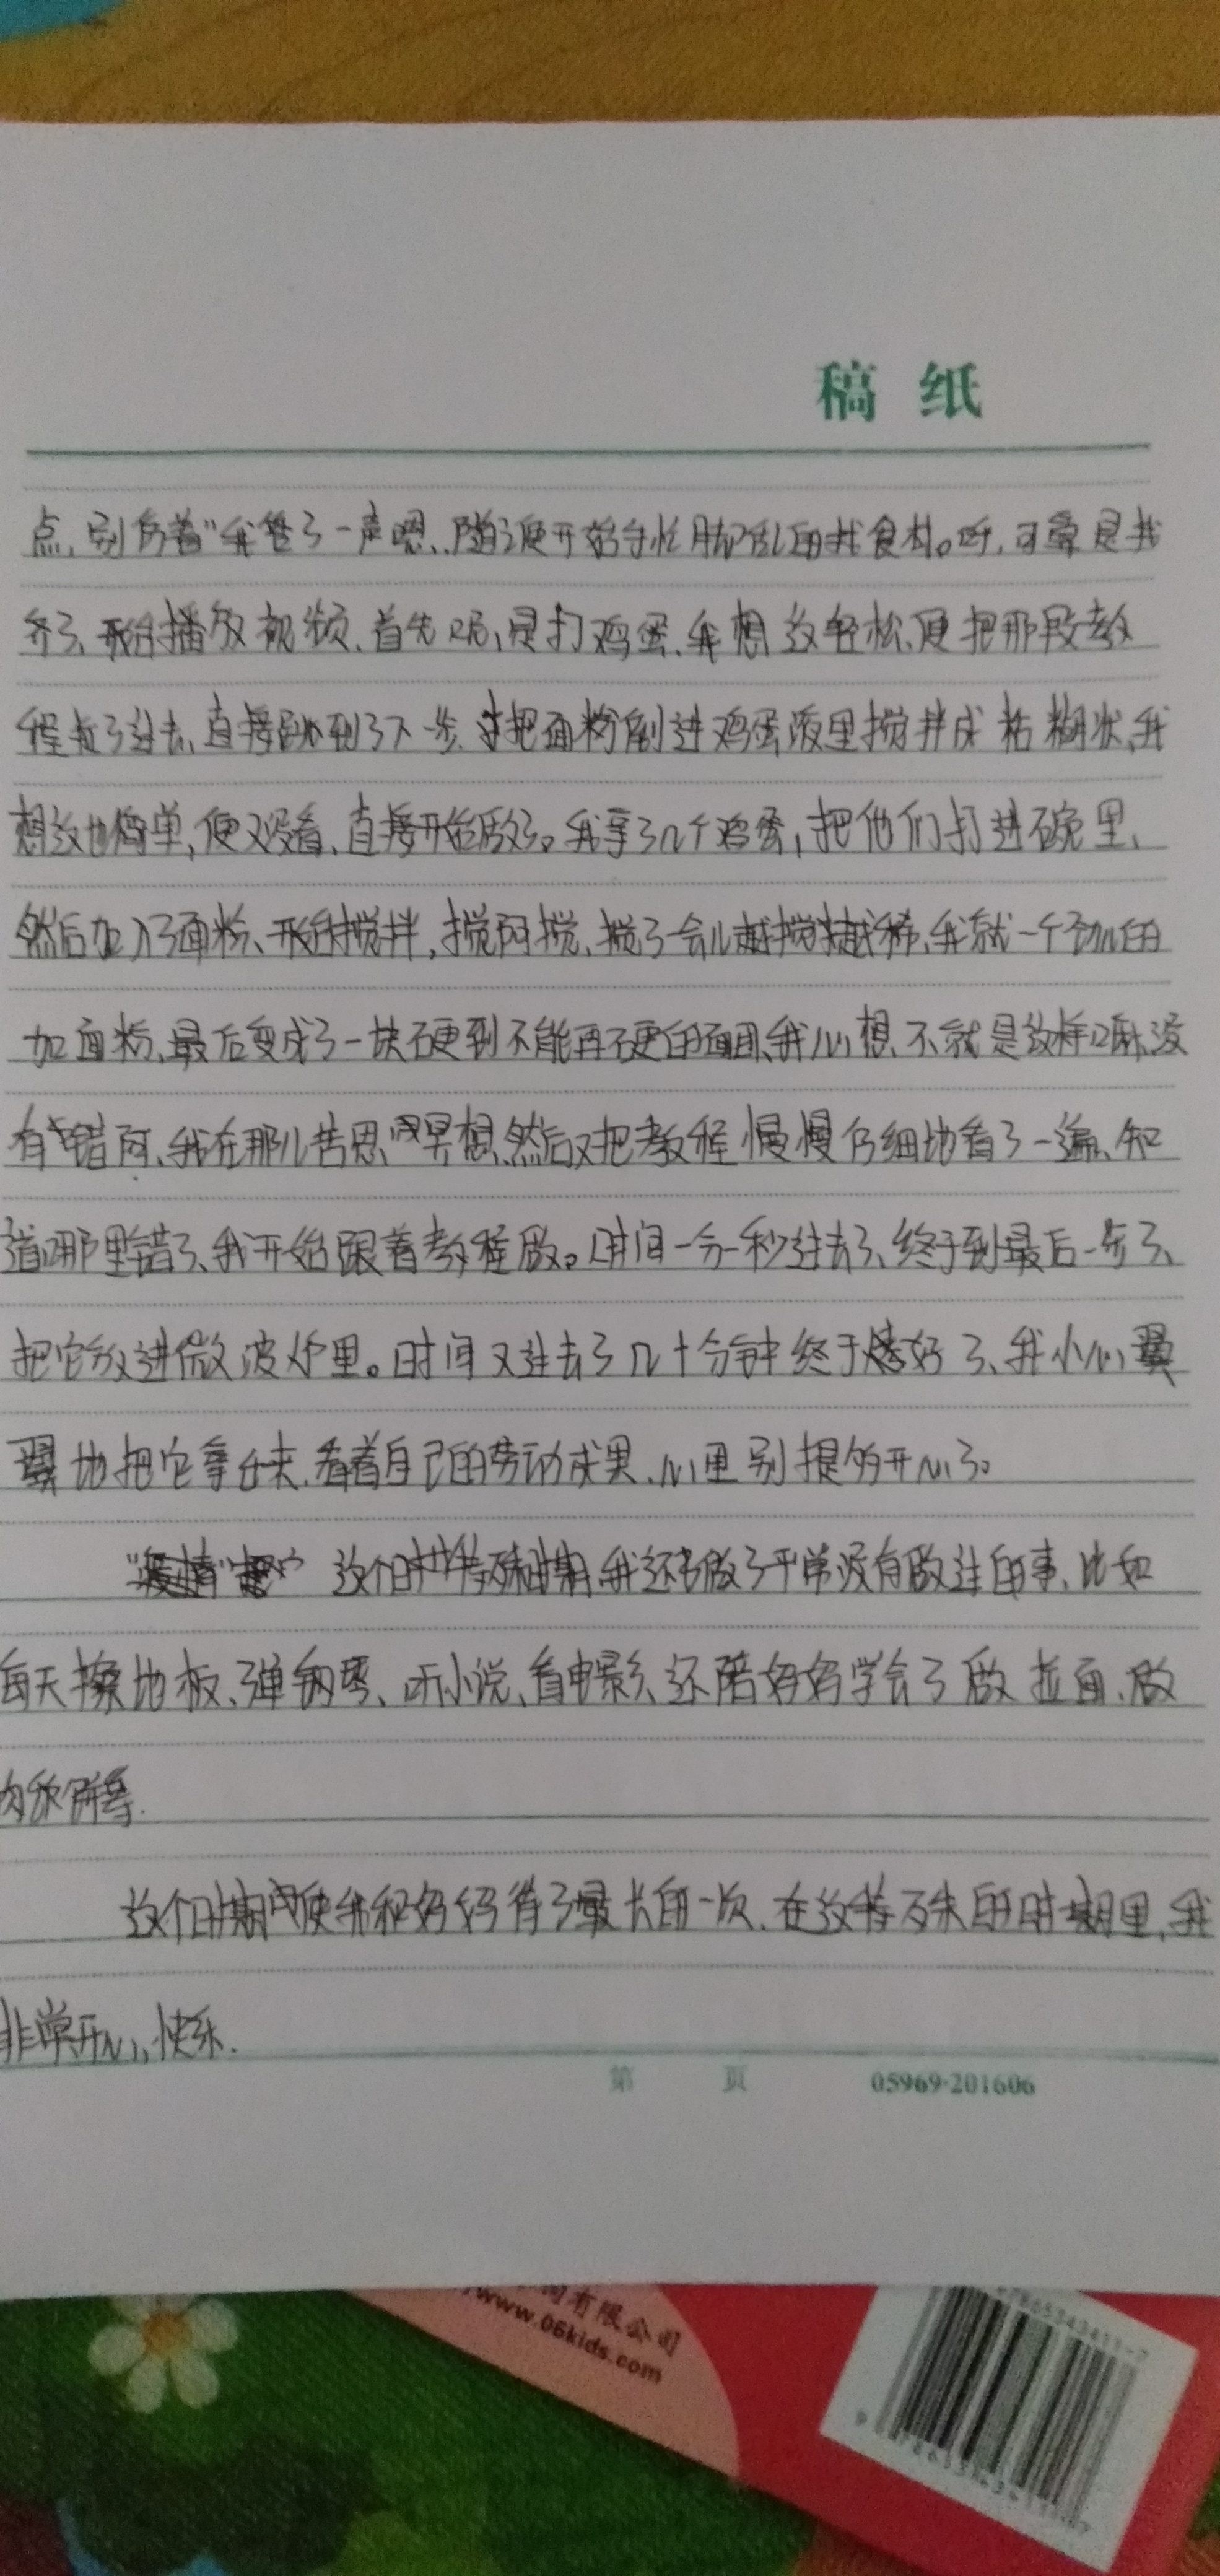 稿 纸
点,别伤着"我答了一声嗯,随便开始手忙脚乱的找食材。呀,可算是找
齐了,开始播放视频,首先呢,是打鸡蛋,我想这轻松,便把那段教
程点了过去,直接跳到了下一步,把面粉倒进鸡蛋液里搅拌成粘糊状,我
想这也简单,便又没看,直接开始做了。我拿了几个鸡蛋,把他们打进碗里,
然后加入了面粉、开始搅拌,搅阿搅,搅了会儿越搅越稀,我就一个劲儿的
加面粉,最后变成了一块硬到不能再硬的面团,我心想,不就是这样嘛,没
有错阿,我在那儿苦思冥想,然后又把教程慢慢仔细地看了一遍,知
道哪里错了,我开始跟着教程做。时间一分一秒过去了,终于到最后一步了,
把它放进微波炉里。时间又过去了几十分钟终于烤好了,我小心翼
翼地把它拿出来,看着自己的劳动成果,心里别提多开心了。
这个特殊时期,我还去做了平常没有做过的事,比如
每天擦地板、弹钢琴、听小说、看电影,还陪妈妈学会了做拉面、做
肉饼等.
这个时期使我和妈妈待了最长的一次,在这特殊的时期里,我
非常开心,快乐.
第 页 05969·201606
有限公司
www.06kids.com